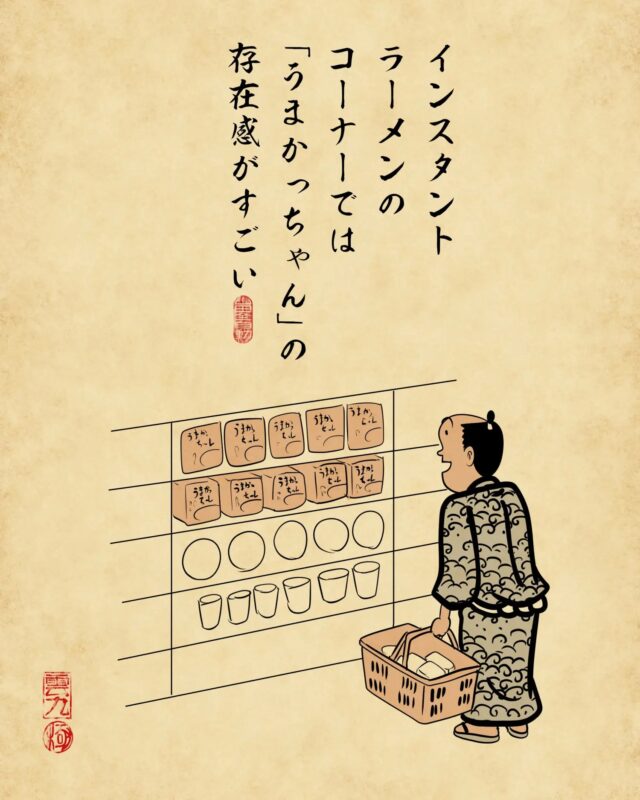 インスタント
ラーメンの
コーナーでは
「うまかっちゃん」の
存在感がすごい
うまかっちゃん
うまかっちゃん
うまかっちゃん
うまかっちゃん
うまかっちゃん
うまかっちゃん
うまかっちゃん
うまかっちゃん
うまかっちゃん
うまかっちゃん